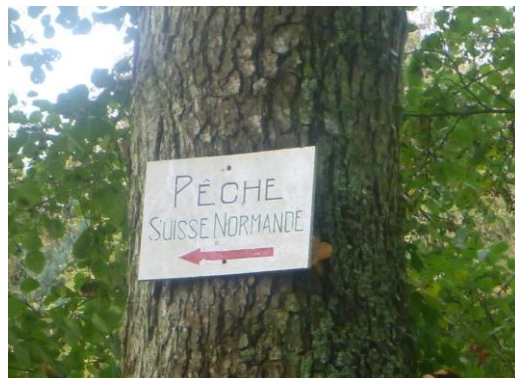 PÊCHE
SUISSE NORMANDE